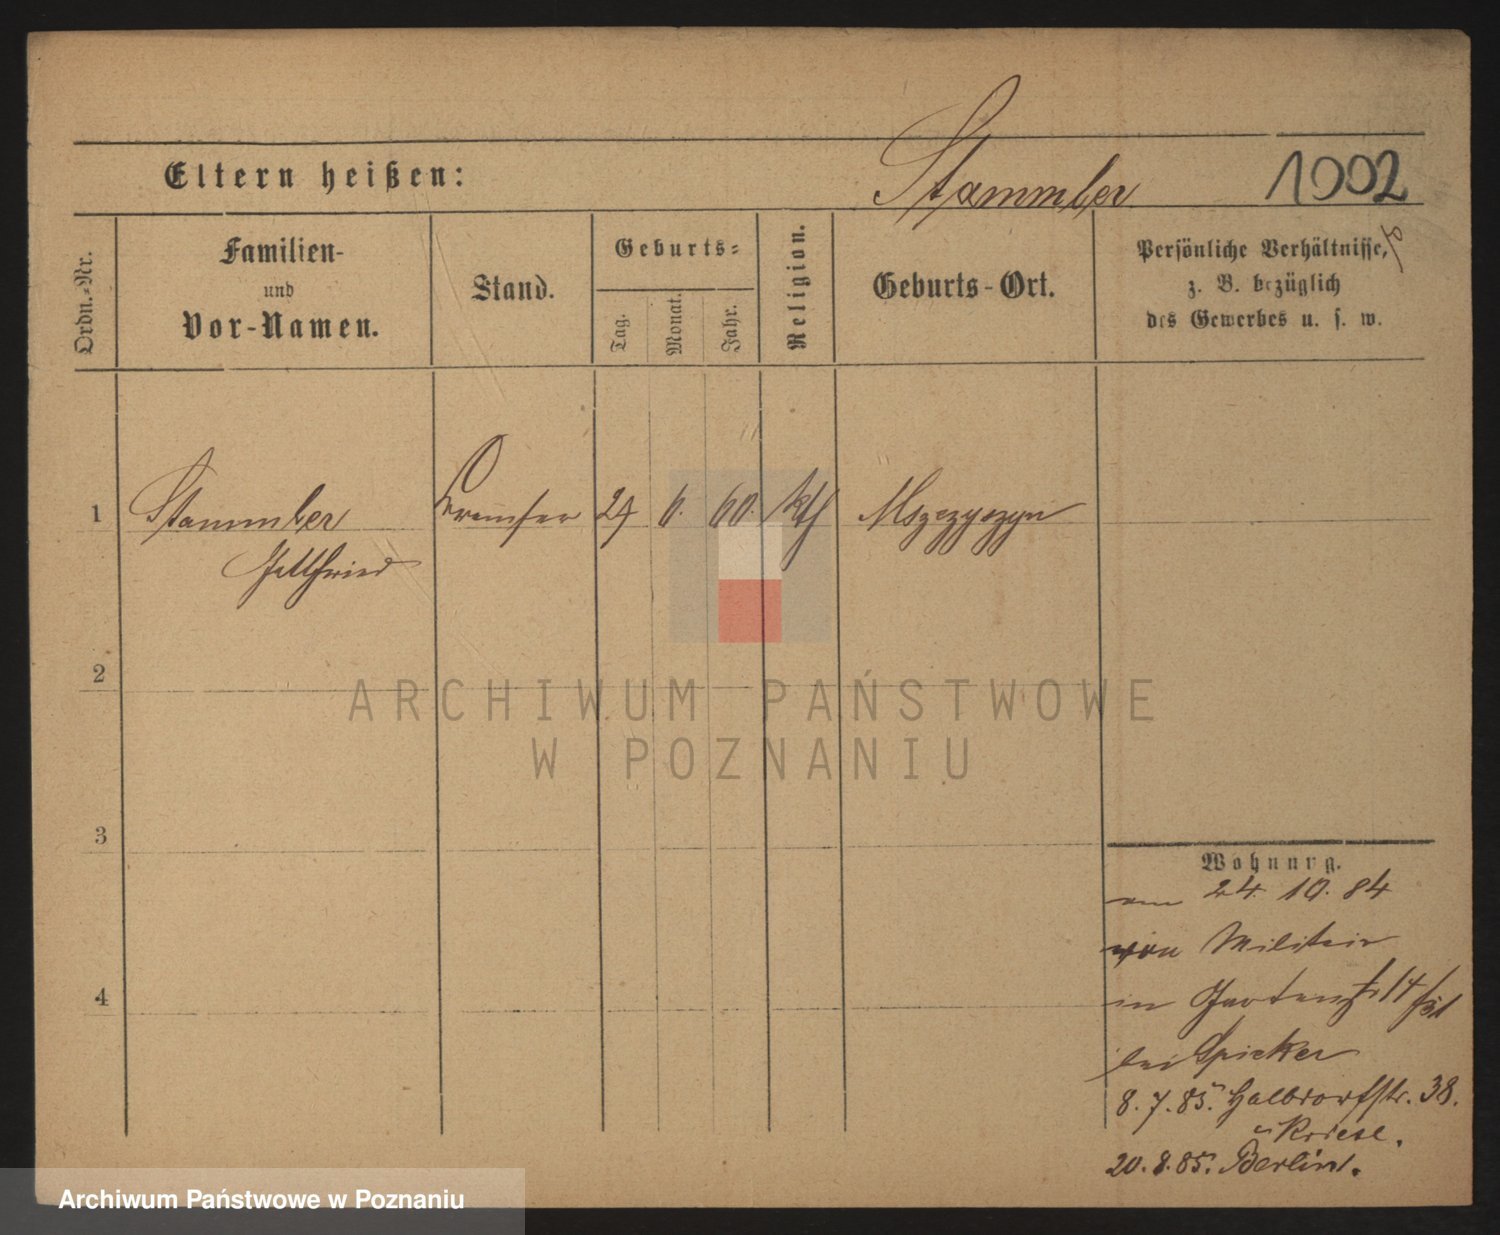 Stammler 1002
Eltern heißen:
Ordn.-Nr.
Familien-
und
Vor-Namen.
Stand.
Geburts-
Tag.
Monat.
Jahr.
Religion.
Geburts-Ort.
Persönliche Verhältnisse,
z. B. bezüglich
des Gewerbes u. s. w.
1 Stammler 29 6. 60. kth Mszczyczyn
2
3
4
Wohnung.
am 24. 10. 84
von Militair
in Gartenstr 14
bei Spieker
8. 7. 85. Halbdorfstr. 38.
Kriese.
20. 8. 85. Berlin.
ARCHIWUM PAŃSTWOWE
W POZNANIU
Archiwum Państwowe w Poznaniu